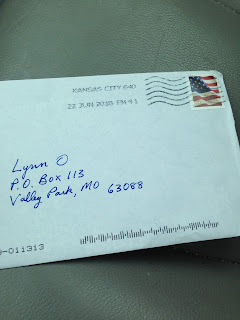 KANSAS CITY 640
22 JUN 2018 PM 4 1
Lynn O
P.O. Box 113
Valley Park, MO 63088
-011313